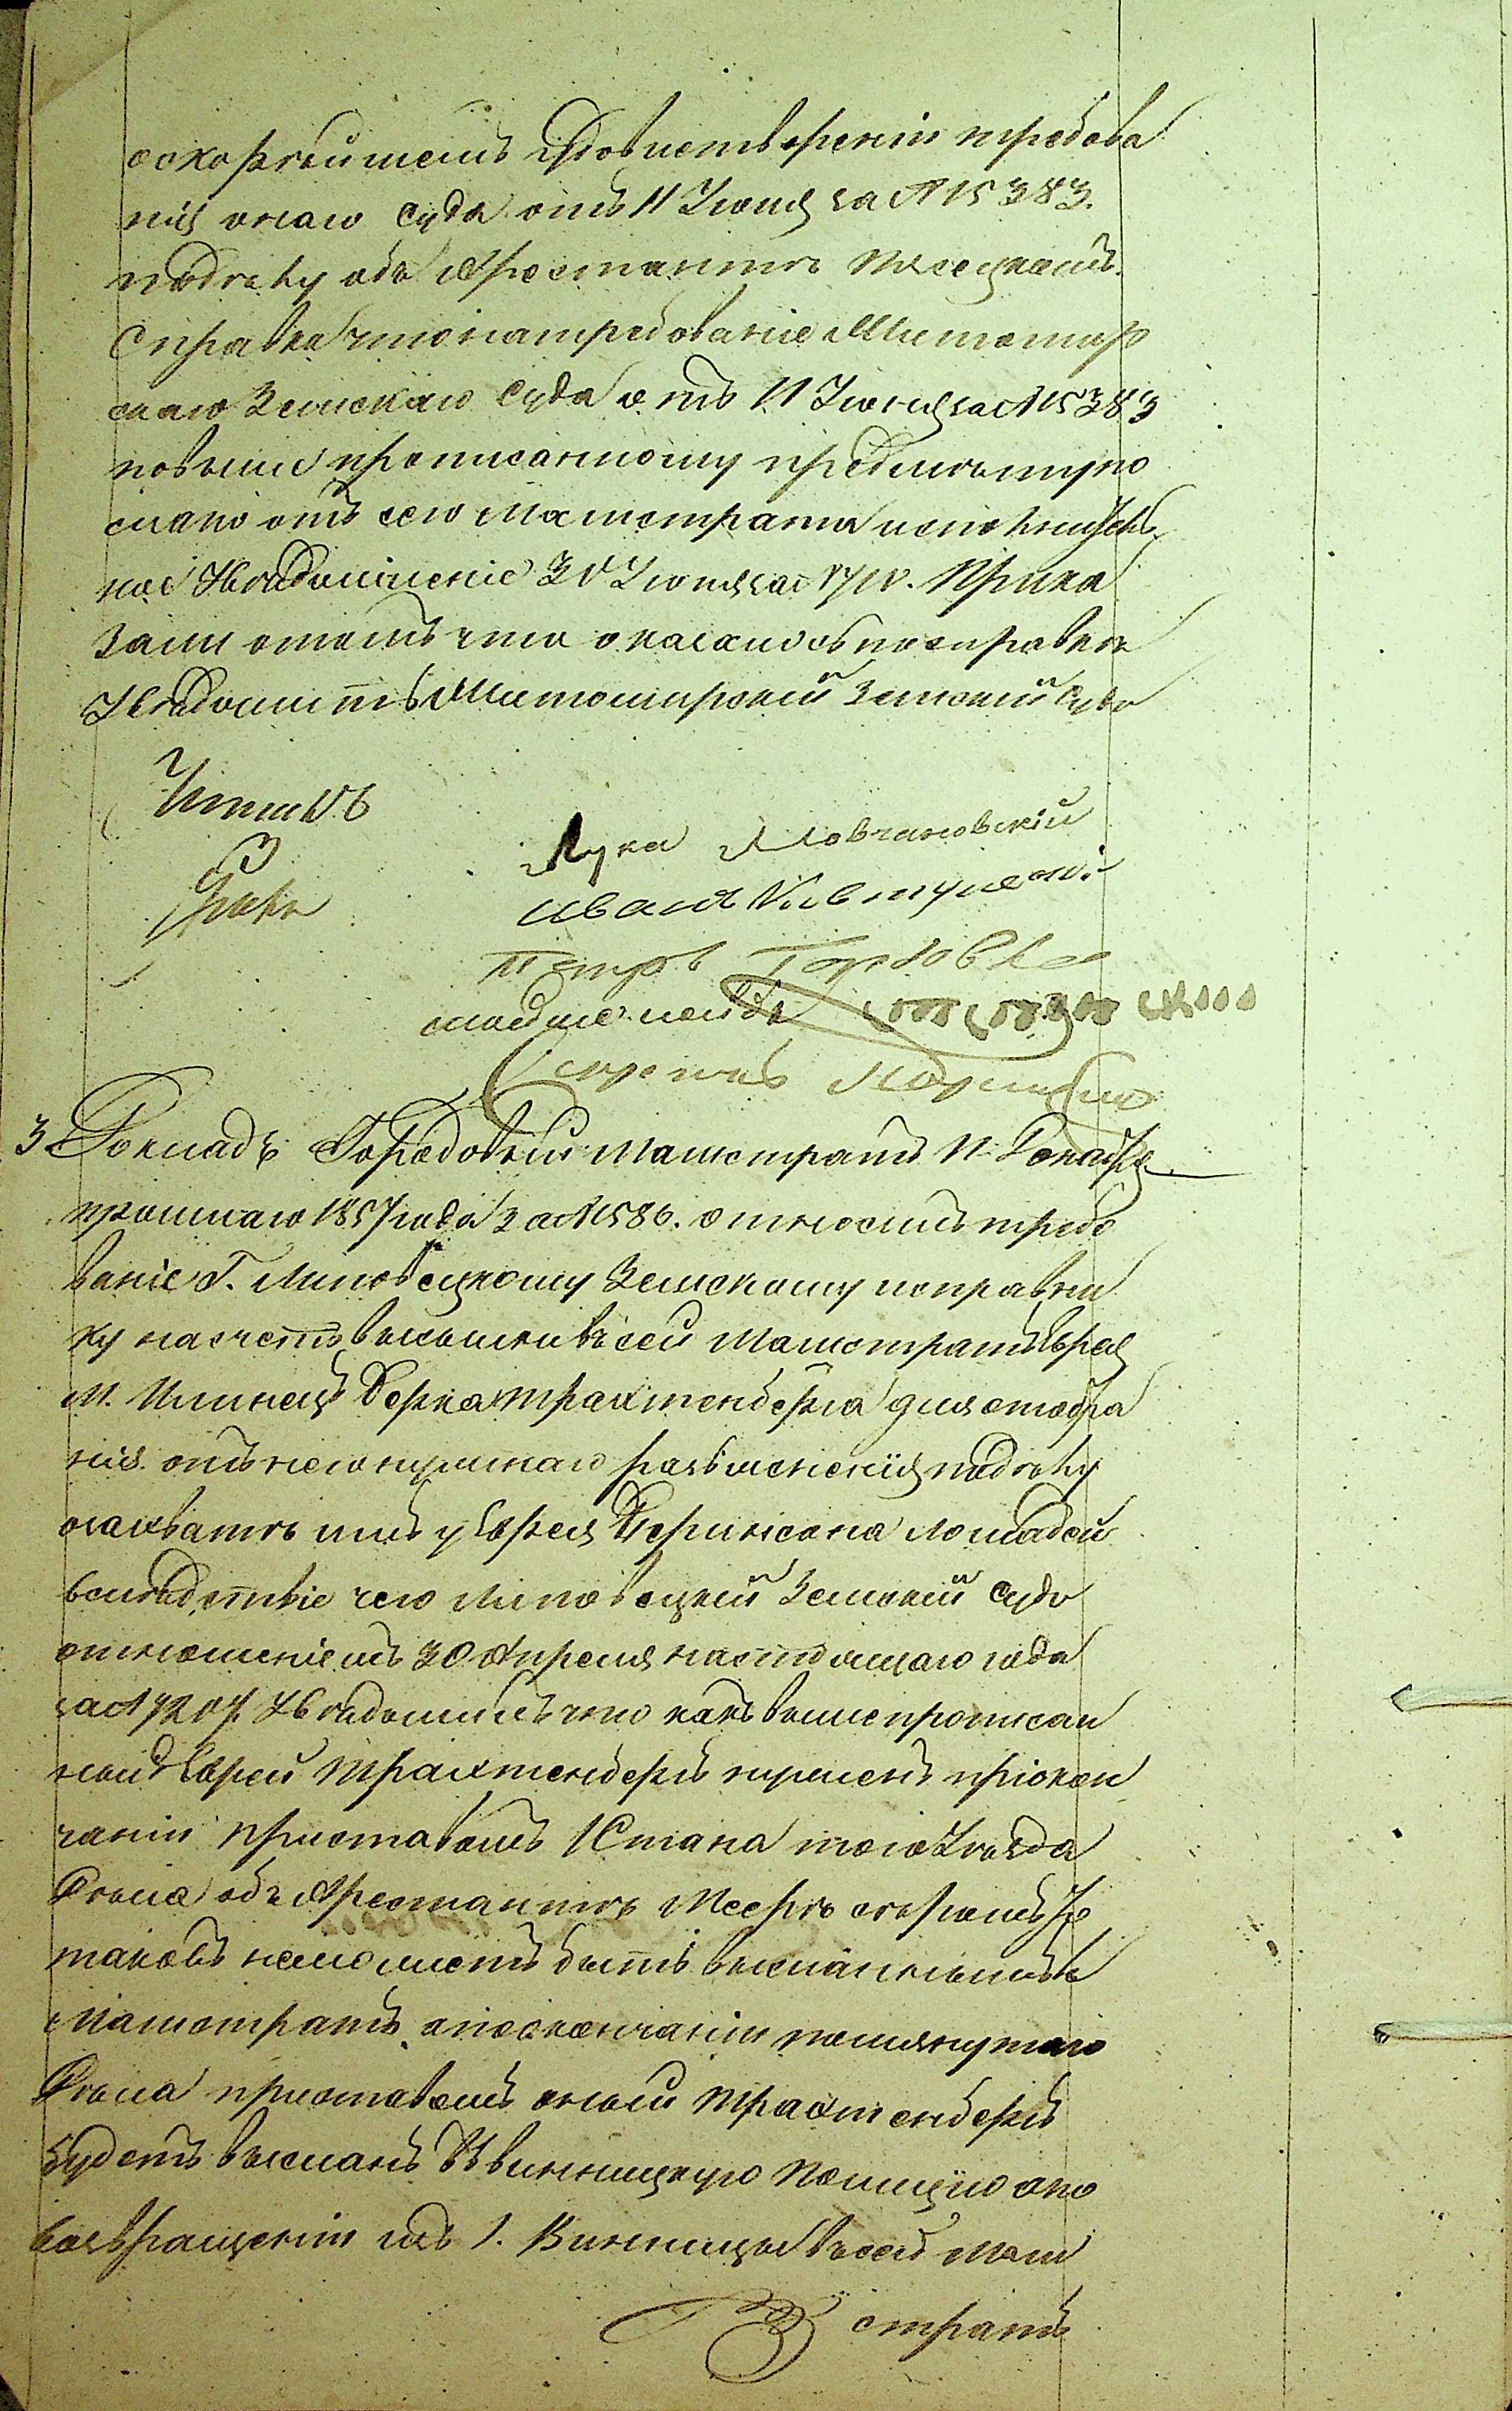 о скорѣйшемъ удовлетвореніи требова
нія онаго Суда отъ 11 Іюня за № 15383.
по дѣлу объ Арестантѣ
Справка что на требованіе Житомир
скаго Земскаго Суда отъ 11 Іюня за № 15383
по выше прописанному предмѣту по
слано отъ сего Магистрата исполнитель
ное увѣдомленіе 30 Іюня за Прика
зали о томъ что оказалось по справкѣ
Увѣдомить Житомирскій Земскій Судъ
Лука Мовчановскій
Иванъ
Петръ
Секретарь
3 Докладъ Городовый Магистратъ 11 Декабря
прошлаго 1857 года за № 1586. относилъ требо
ваніе Г. Липовецкому Земскому исправни
ку на счетъ высылки въ сей Магистратъ Еврея
М. Илинецъ Берка Трахтенберга для отобра
нія отъ него нужнаго разъясненія по дѣлу
о захватѣ имъ у Еврея лошадей
вслѣдствіе чего Липовецкій Земскій Судъ
отношеніемъ 30 Апрѣля настоящаго года
за № 7207 Увѣдомилъ что какъ вышепрописан
ный Еврей Трахтенбергъ нуженъ при окон
чаніи Приставомъ 1 Стана того Уѣзда
Дѣла объ Арестантѣ то
таковъ не можетъ быть высланнымъ въ
Магистратъ, а по окончаніи помянутаго
Дѣла приставомъ оный Трахтенбергъ
будетъ высланъ въ Винницкую Полицію а по
возвращеніи изъ г. Винницы въ сей Маги
стратъ